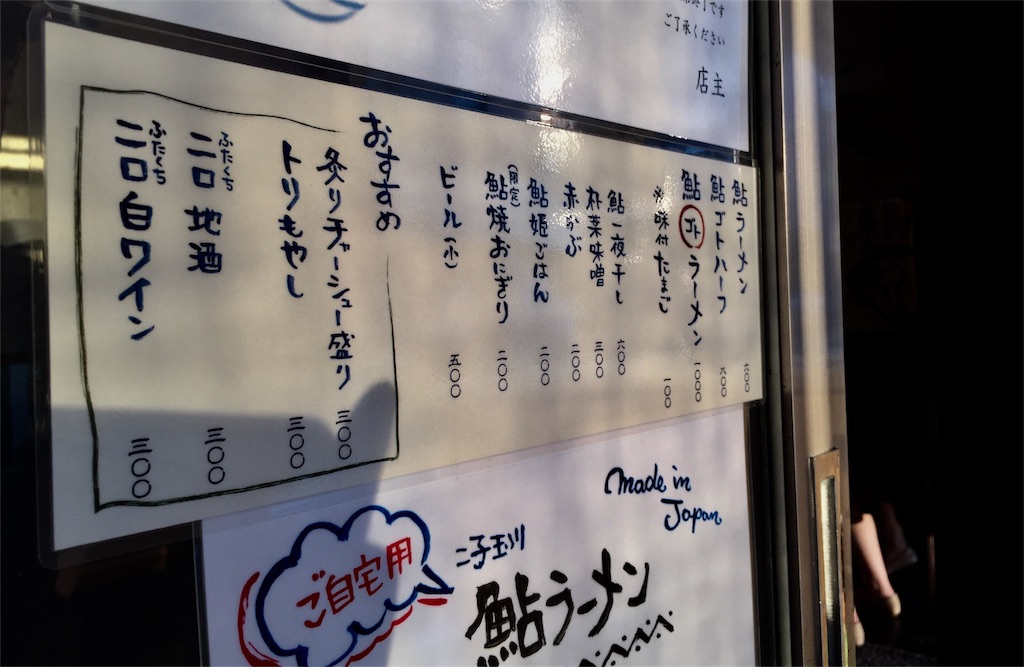 終了です
ご了承ください
店主
鮎ラーメン 六〇〇
鮎ゴトハーフ 八〇〇
鮎ゴトラーメン 一〇〇〇
味付たまご 一〇〇
鮎一夜干し 六〇〇
朴葉味噌 三〇〇
赤かぶ 二〇〇
鮎姫ごはん 二〇〇
(限定)
鮎焼おにぎり 二〇〇
ビール(小) 五〇〇
おすすめ
炙りチャーシュー盛り 三〇〇
トリもやし 三〇〇
ふたくち
二口地酒 三〇〇
ふたくち
二口白ワイン 三〇〇
made in
Japan
ご自宅用
二子玉川
鮎ラーメン